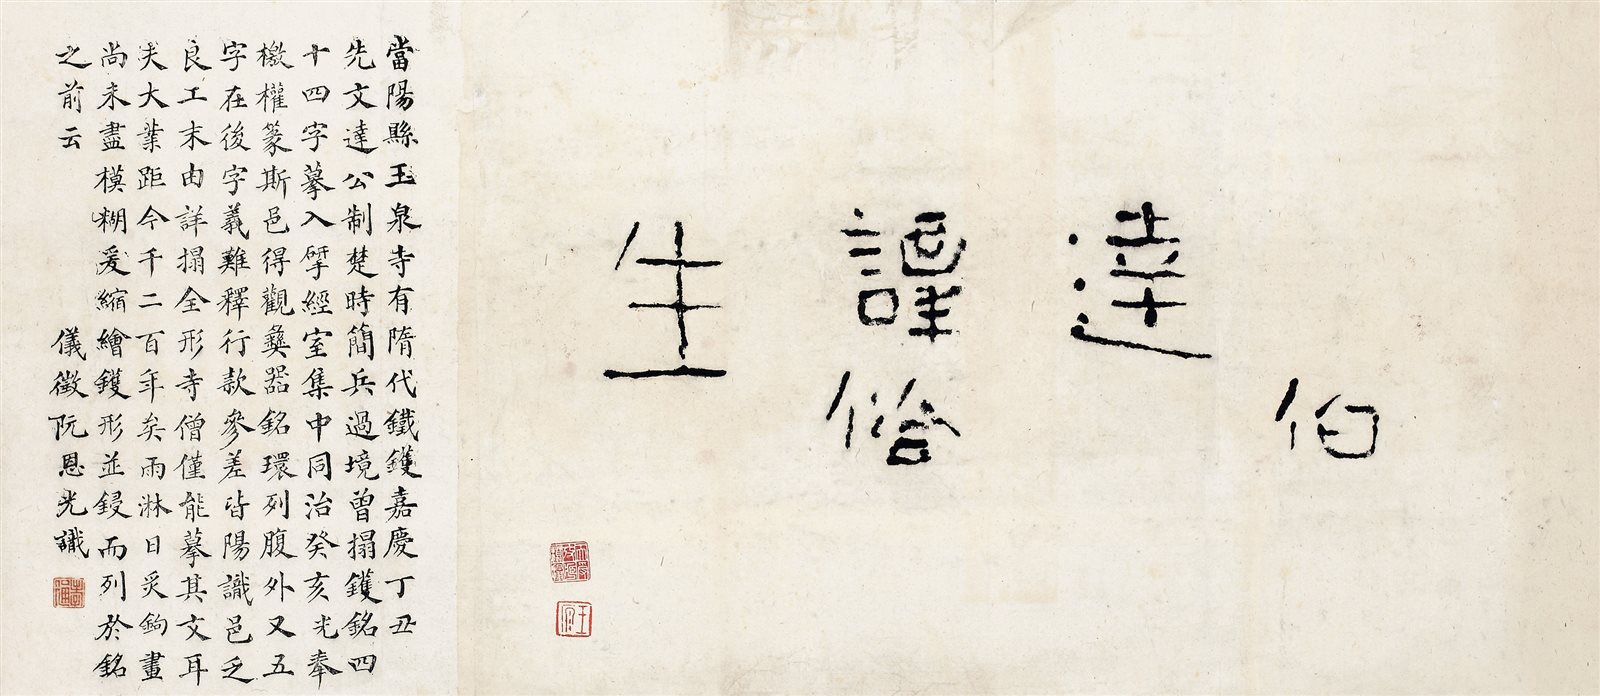 伯
達
謹
俗
生
當陽縣玉泉寺有隋代鐵鑊嘉慶丁丑
先文達公制楚時簡兵過境曾搨鑊銘四
十四字摹入揅經室集中同治癸亥光奉
檄權篆斯邑得觀彝器銘環列腹外又五
字在後字義難釋行款參差皆陽識邑乏
良工末由詳搨全形寺僧僅能摹其文耳
夫大業距今千二百年矣雨淋日炙鉤畫
尚未盡模糊爰縮繪鑊形並鋟而列於銘
之前云
儀徵阮恩光識